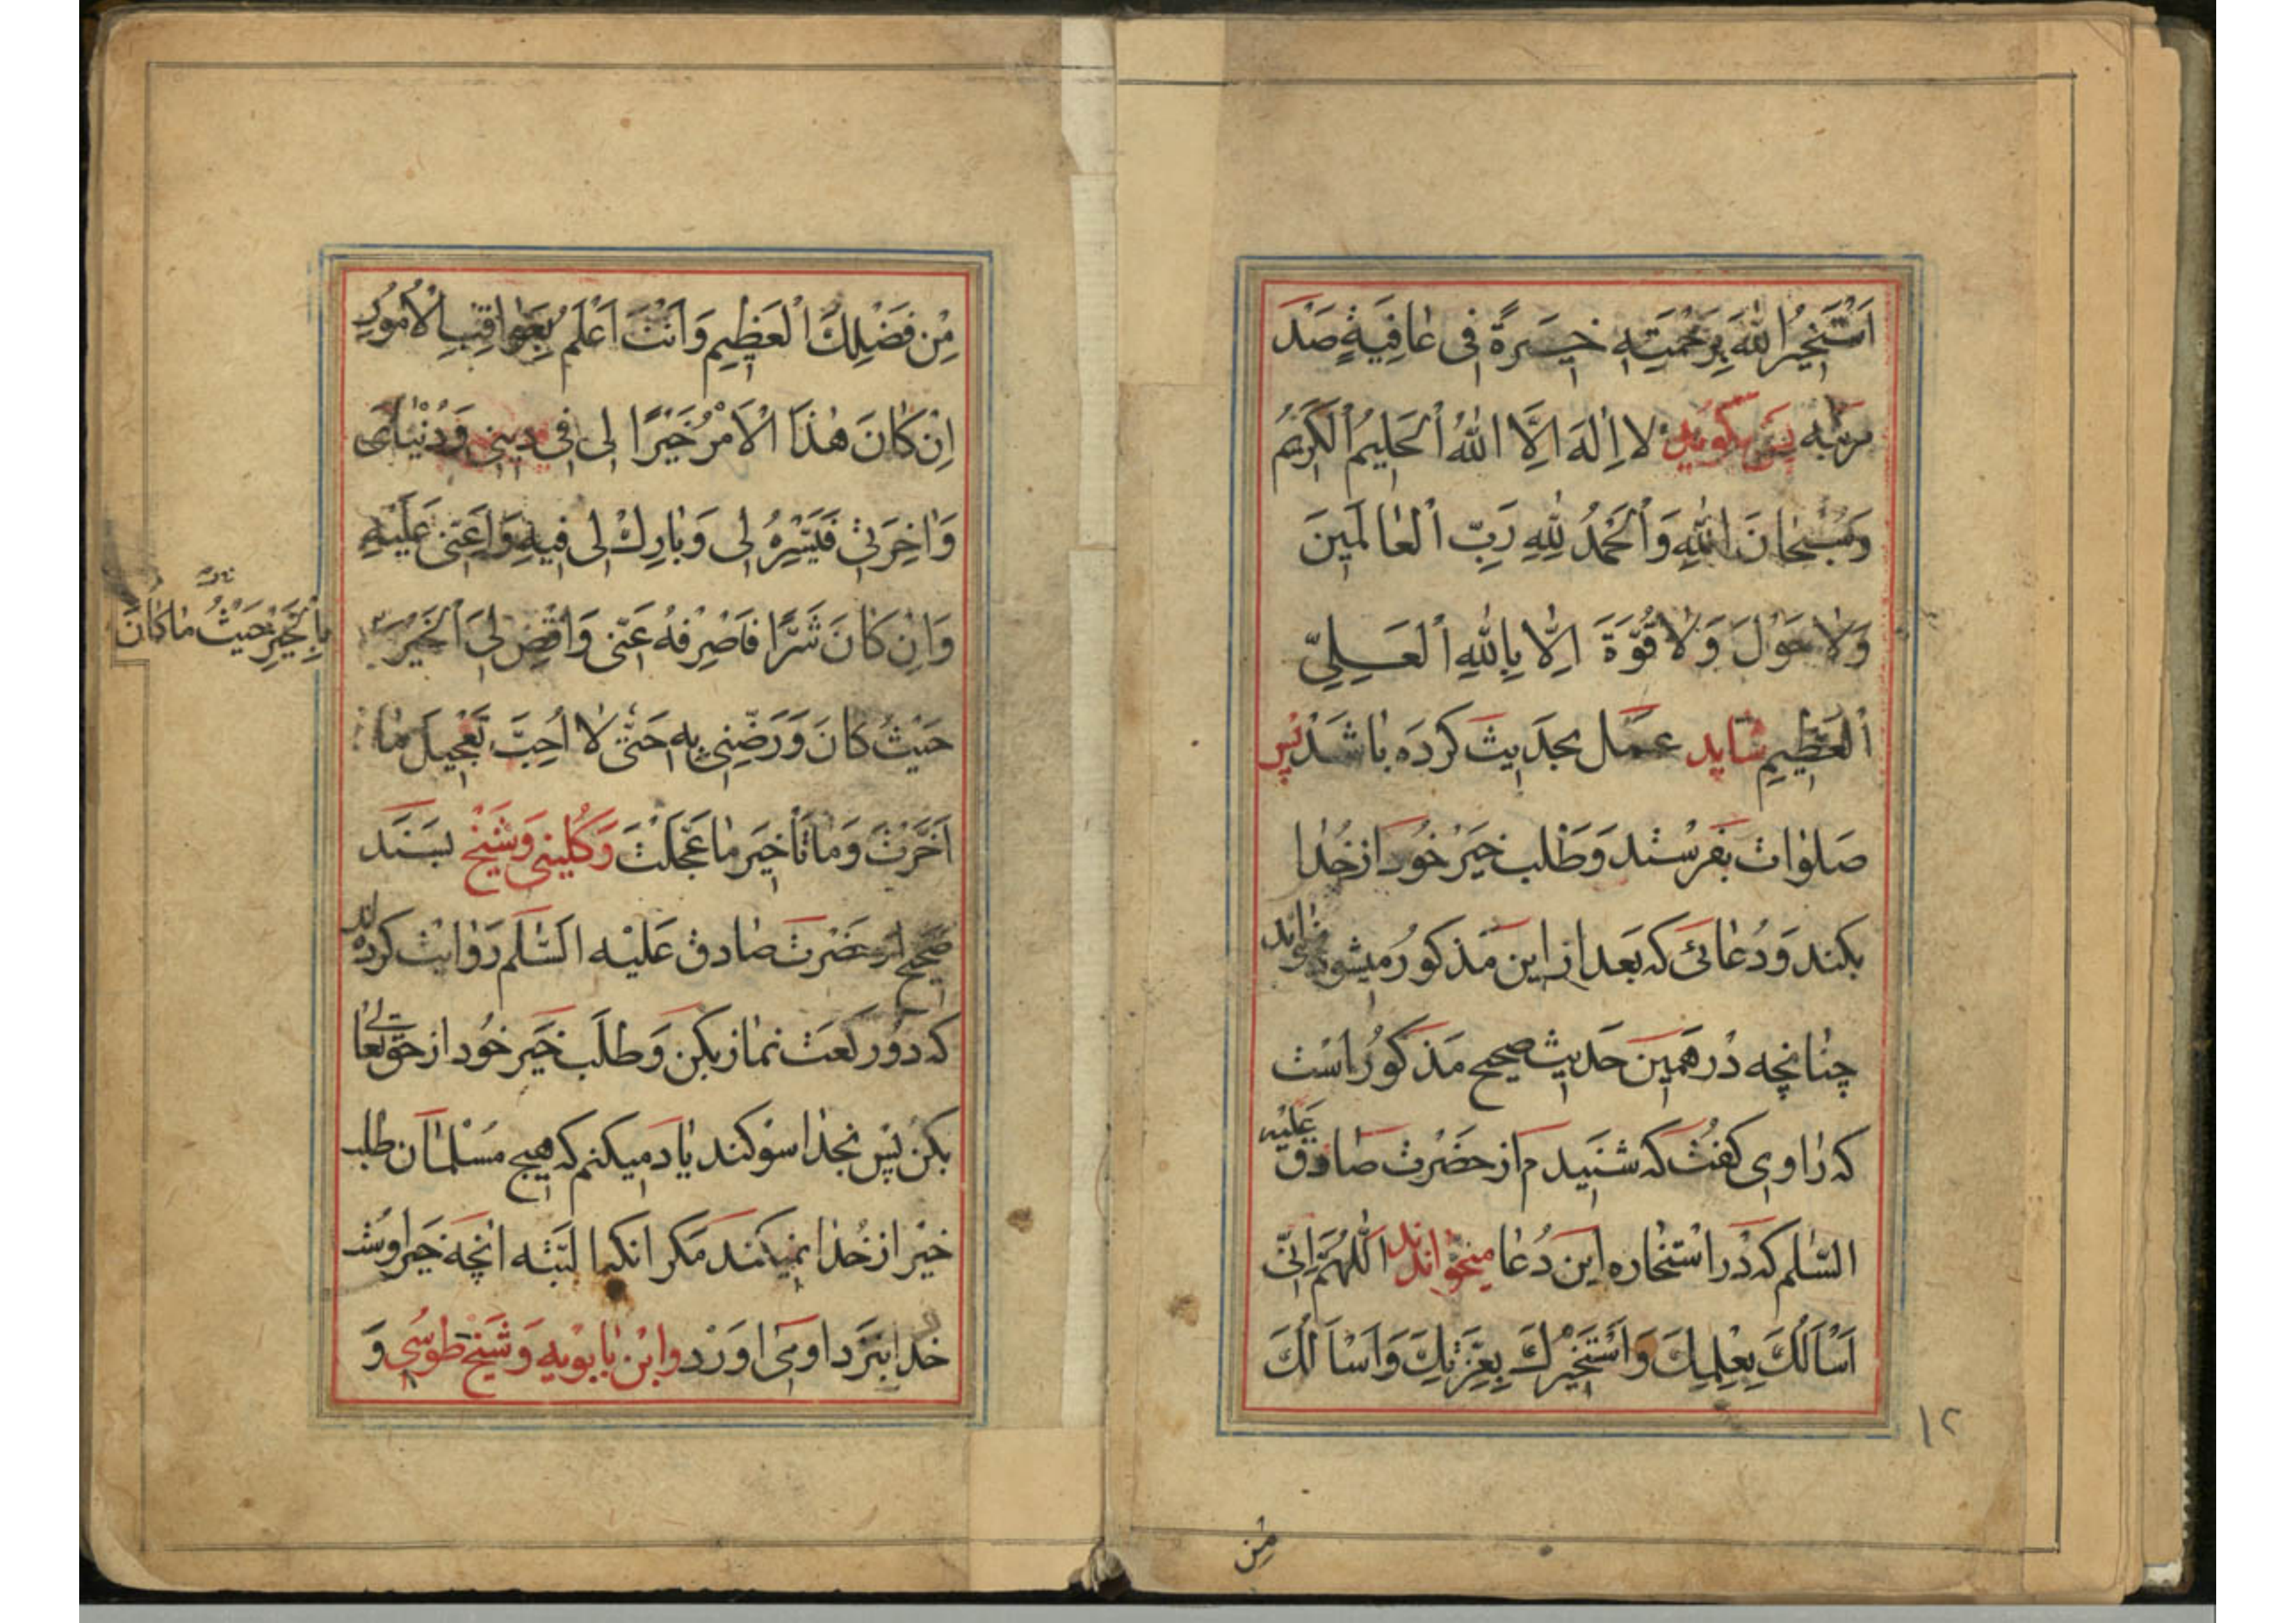 اَسْتَخیرُ اللهَ بِرَحْمَتِهِ خِیَرَةً فی عٰافِیَةٍ صَدْ
مرتبه پس بگوید لا اِلٰهَ اِلَّا اللهُ اْلحَلیمُ اْلکَریمُ
وَسُبْحٰانَ اللهِ وَاْلحَمْدُ لِلّٰهِ رَبِّ اْلعٰالَمینَ
وَلاٰ حَوْلَ وَلاٰ قُوَّةَ اِلّٰا بِاللهِ اْلعَلِیِّ
اْلعَظیمِ شاید عَمَل بحَدیث کرْدَه باشَدْ پس
صَلوٰات بفَرسْتد وَ طَلب خیَر خُود از خُدٰا
بکند وَ دُعٰائی که بَعد از این مَذکوُر میشود بخواند
چنٰانچه دَر همین حَدیث صحیح مَذکوُر اسْت
که رٰاوی کفْت که شنیدم از حَضرْت صٰادق عَلیْه
السَّلم که دَر اسْتخٰاره این دُعٰا میخوٰاندند اَللّٰهُمَّ اِنّی
اَسْاَلُكَ بِعِلْمِكَ وَاَسْتَخیرُكَ بِعِزَّتِكَ وَاَسْاَلُكَ
١٢
مِن
مِنْ فَضْلِكَ اْلعَظیمِ وَاَنْتَ اَعْلَمُ بِعَوٰاقِبِ اْلاُمُورِ
اِنْ کٰانَ هٰذَا اْلاَمْرُ خَیْرًا لی فی دینی وَدُنْیٰایَ
وَاٰخِرَتی فَیَسِّرْهُ لی وَبٰارِكْ لی فیهِ وَاَعِنّی عَلَیْهِ
وَاِنْ کٰانَ شَرًّا فَاصْرِفْهُ عَنّی وَاقْضِ لِیَ اْلخَیْرَ
بِاْلخَیْرِ حَیْثُ مٰا کٰانَ
حَیْثُ کٰانَ وَرَضِّنی بِهِ حَتّٰی لاٰ اُحِبَّ تَعْجیلَ مٰا
اَخَّرْتَ وَمٰا تَأخیرَ مٰا عَجَّلْتَ وَ کُلینی وَ شَیْخ بسَنَد
صَحیح از حَضرَت صٰادق عَلَیْه السَّلم رَوٰایت کرده‌اند
که دوُ رکعَت نمٰاز بکن وَ طلَب خَیر خُود از حق تعٰالی
بکن پس بخدٰا سوْکند یٰاد میکنم که هیچ مسْلمٰان طلب
خیْر از خُدٰا نمیکند مَکر انکه البَتّه انچه خَیر اوسْت
خدا بنَزد او می اوَرَد وَ ابْن بٰابویه وَ شَیْخ طوُسی وَ